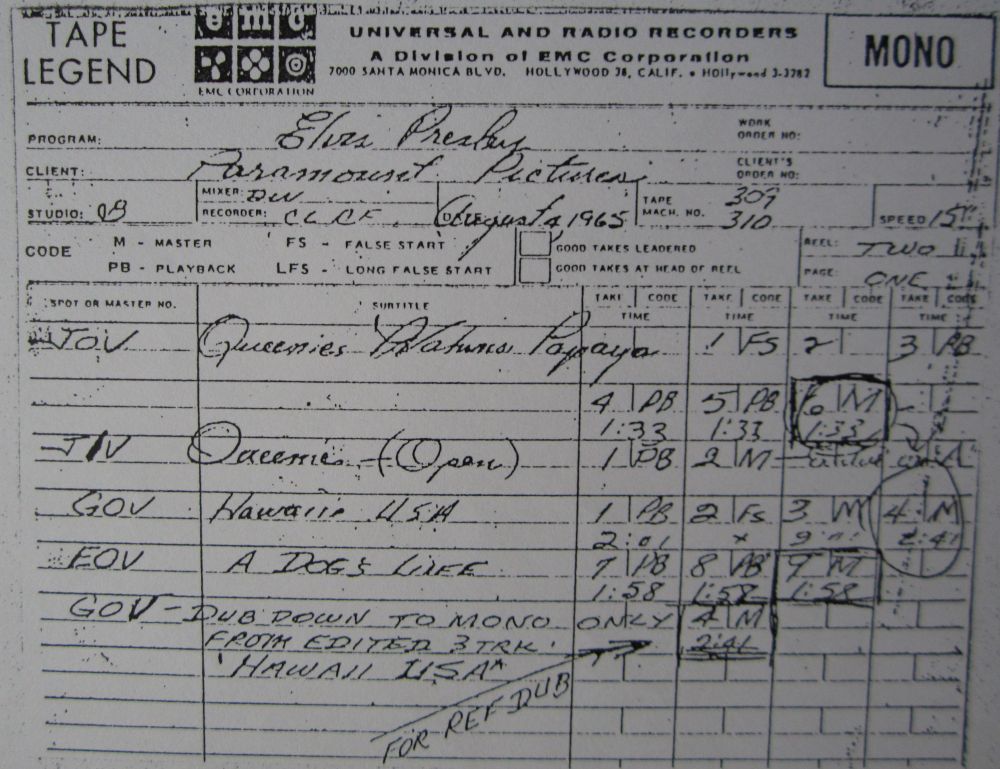 TAPE LEGEND
emc
EMC CORPORATION
UNIVERSAL AND RADIO RECORDERS
A Division of EMC Corporation
7000 SANTA MONICA BLVD. HOLLYWOOD 38, CALIF. • HOllywood 3-3282
MONO
PROGRAM: Elvis Presley
WORK ORDER NO:
CLIENT: Paramount Pictures
CLIENT'S ORDER NO:
STUDIO: B
MIXER: DW
RECORDER: CL CF
August 4, 1965
TAPE MACH. NO. 309 310
SPEED 15"
CODE
M - MASTER FS - FALSE START
PB - PLAYBACK LFS - LONG FALSE START
GOOD TAKES LEADERED
GOOD TAKES AT HEAD OF REEL
REEL: TWO
PAGE: ONE
SPOT OR MASTER NO. SUBTITLE TAKE CODE TAKE CODE TAKE CODE TAKE CODE
TIME TIME TIME TIME
JOV Queenies Papaya 1 FS 2 3 PB
4 PB 5 PB 6 M
1:33 1:33 1:33
Queenie (Open) 1 PB 2 M
GOV Hawaii USA 1 PB 2 FS 3 M 4 M
2:01 x 2:41
EOV A DOGS LIFE 7 PB 8 PB 9 M
1:58 1:58 1:58
GOV - DUB DOWN TO MONO ONLY 4 M
FROM EDITED 3 TRK. 2:41
"HAWAII USA"
FOR REF DUB